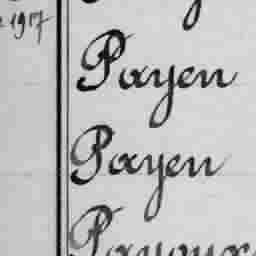 1917
Payen
Payen